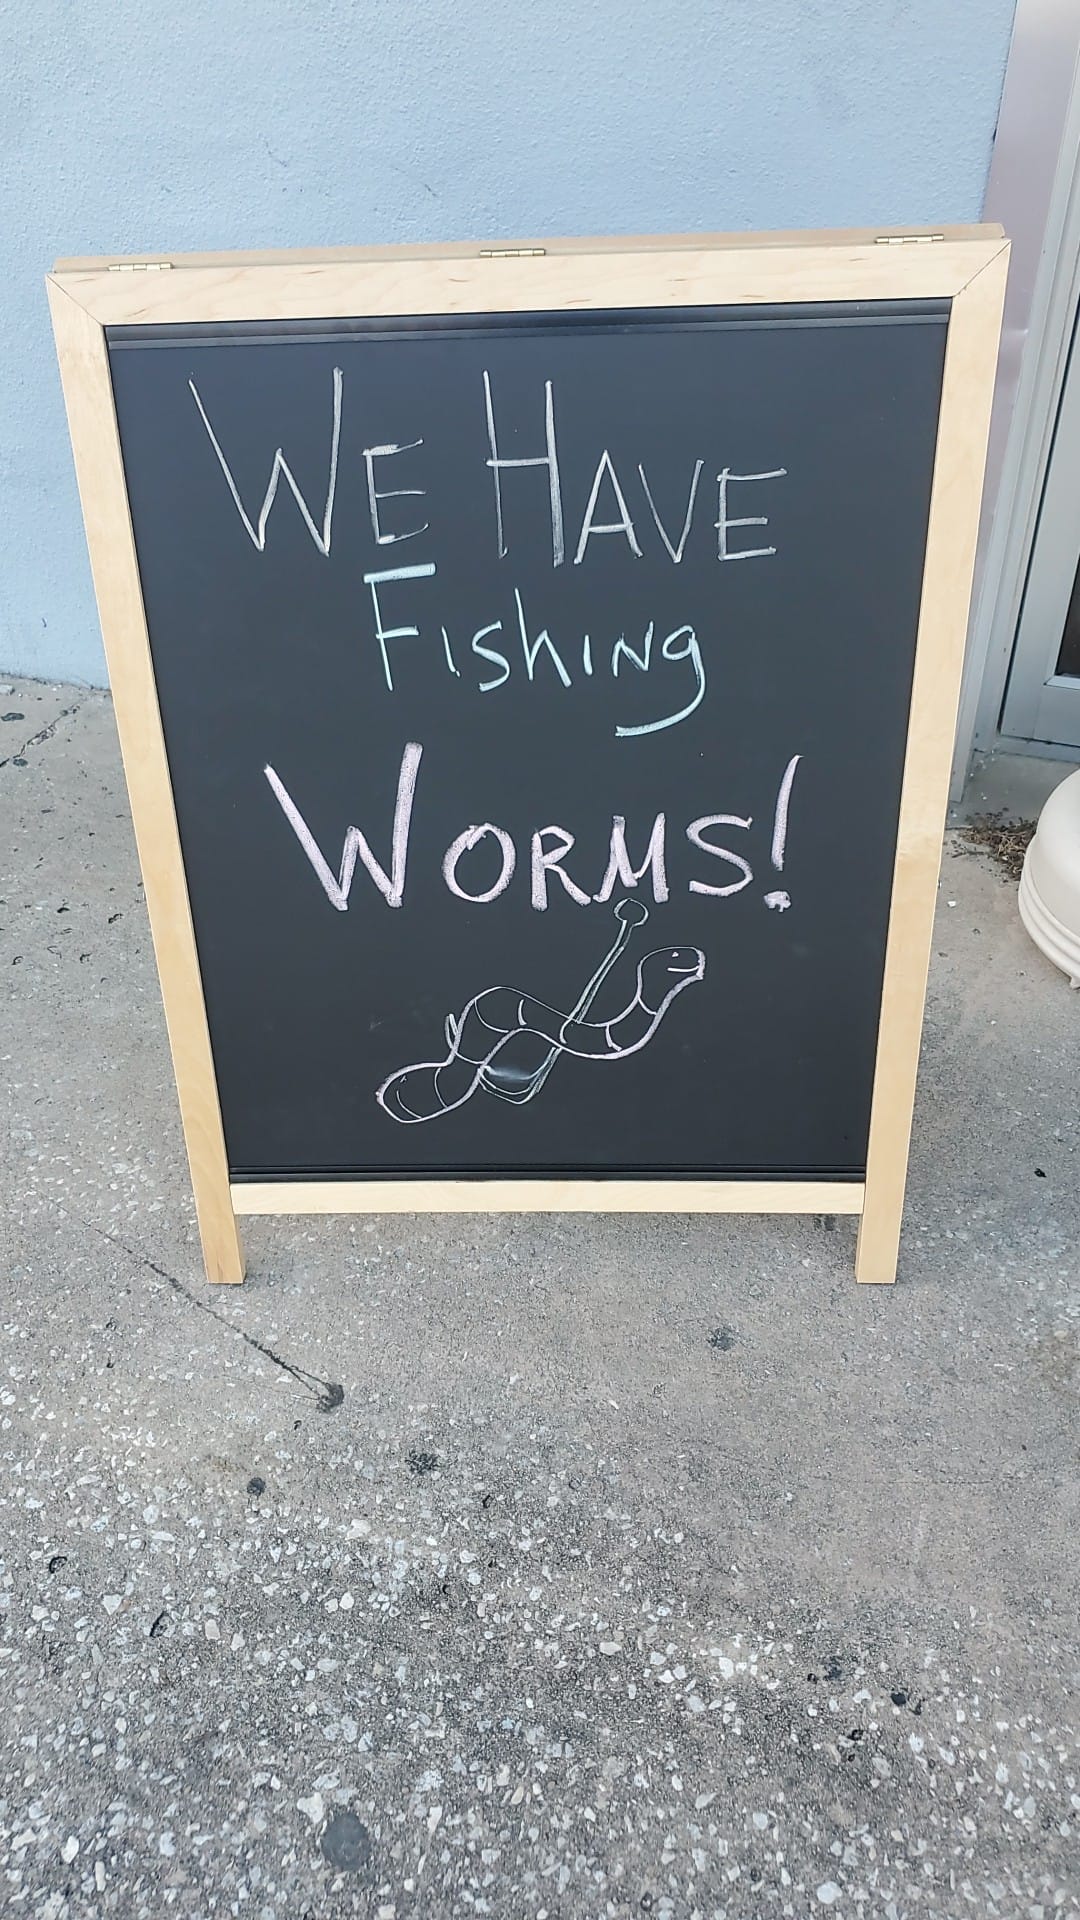 We Have
Fishing
Worms!